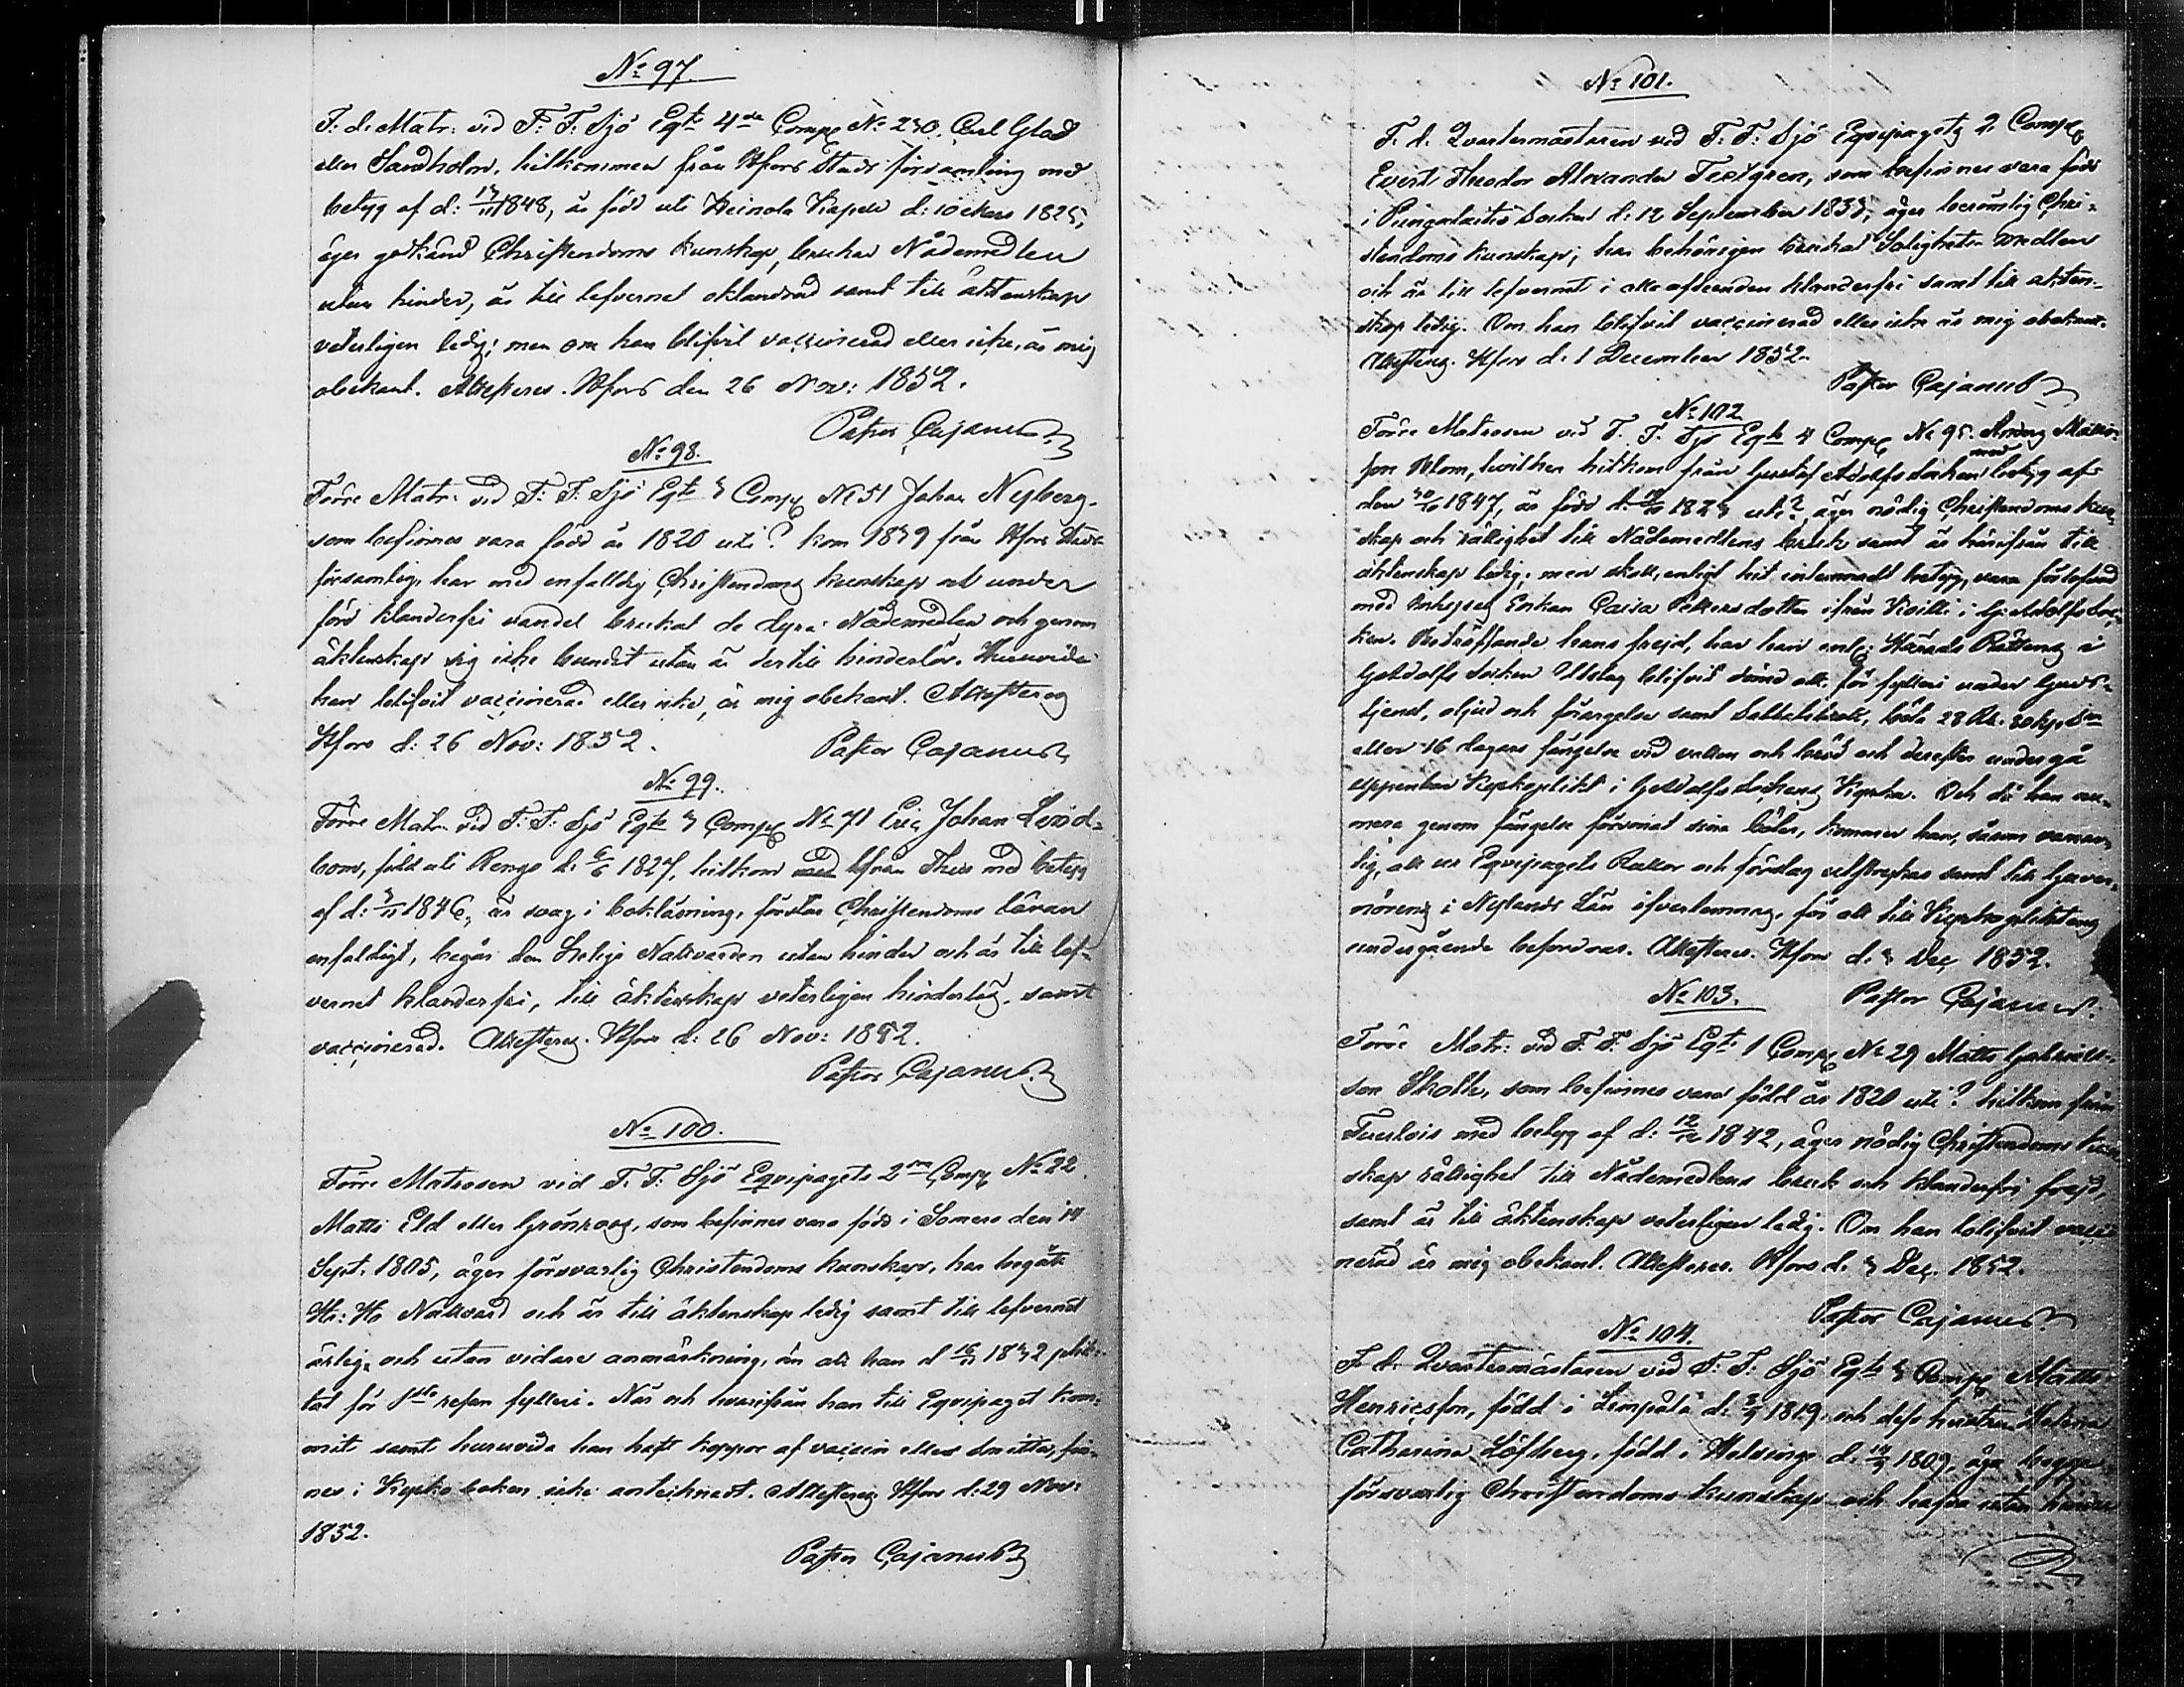 No 97.
F. d. Matr: vid F: F: Sjö Eqts 4de Comp. No 230. Carl Glad
eller Sandholm, hitkommen från Hfors Stads församling med
betyg af d: 1848, är född uti Heinola Kapell d: 10 Mars 1825,
äger godkänd Christendoms kunskap, brukar Nådemedlen
utan hinder, är till lefvernet oklandrad samt till äktenskap
veterligen ledig; men om han blifvit vaccinerad eller icke, är mig
obekant. Attesteras. Hfors den 26 Nov: 1852.
Pastor Cajanus
No 98.
Förre Matr: vid F: F: Sjö Eqts 3 Comp No 51 Johan Nyberg,
som befinnes vara född år 1820 uti? kom 1839 från Hfors Stads
församling, har med enfaldig Christendoms kunskap och under
förd klanderfri vandel brukat de dyra Nådemedlen och genom
äktenskap sig icke bundit utan är dertill hinderlös. Huruvida
han blifvit vaccinerad eller icke, är mig obekant. Attesteras
Hfors d: 26 Nov: 1852.
Pastor Cajanus
No 99.
Förre Matr. vid F: F: Sjö Eqts 3 Comp No 71 Eric Johan Lövd-
bom, född uti Rengo d. 6/6 1827, hitkom från Thus med betyg
af d: 1846, är svag i bokläsning, förstår Christendoms läran
enfaldigt, begår den Helige Nattvarden utan hinder och är till lef-
vernet klanderfri, till äktenskap veterligen hinderlös, samt
vaccinerad. Attesteras. Hfors d: 26 Nov: 1852.
Pastor Cajanus
No 100.
Förre Matrosen vid F. F. Sjö Eqvipagets 2dra Comp No 22
Matts Eld eller Grönroos, som befinnes vara född i Somero den 14
Sept. 1805, äger försvarlig Christendoms kunskap, har begått
H: H: Nattvard och är till äktenskap ledig samt till lefvernet
ärlig, och utan vidare anmärkning, än att han d 16/11 1832 plik-
tat för 1sta resan fylleri. När och hvarifrån han till Eqvipaget kom-
mit samt huruvida han haft koppor af vaccin eller smitta, fin-
nes i Kyrkoboken icke antecknadt. Attesteras Hfors d: 29 Nov:
1852.
Pastor Cajanus
No 101.
F. d. Qvartermästaren vid F: F: Sjö Eqvipagets 2. Comp
Evert Theodor Alexander Textgren, som befinnes vara född
i Pungalaitio Socken d: 12 September 1833, äger berömlig Chri-
stendoms kunskap; har behörigen brukat Salighets medlen
och är till lefvernet i alla afseenden klanderfri samt till äkten-
skap ledig. Om han blifvit vaccinerad eller icke är mig obekant.
Attesteras. Hfors d. 1 December 1852.
Pastor Cajanus
No 102
Förre Matrosen vid F. F. Sjö Eqts 4 Comp No 95. Matts-
son Blom, hvilken hitkom från Gustaf Adolfs Socken med betyg af
den 1847, är född d. 1823 uti? äger nödig Christendoms kun-
skap och rättighet till Nådemedlens bruk samt är härifrån till
äktenskap ledig; men skall, enligt hit inlemnadt betyg, vara förlofvad
med Inhyses Enkan Caisa Pettersdotter ifrån i G. Adolfs Soc-
ken. Beträffande hans frejd, har han enl: Härads Rättens i
G. Adolfs Socken Utslag blifvit dömd att för fylleri under Guds-
tjenst, oljud och förargelse samt Sabbatsbrott, böta 28 Rb. 80 kop Sr
eller 16 dagars fängelse vid vatten och bröd och derefter undergå
uppenbar Kyrkoplikt i G. Adolfs Sockens Kyrka. Och då han nu-
mera genom fängelse försonat sina böter, kommer han, såsom vanar-
tig, att ur Eqvipagets Rullor och förslag utstrykas samt till Guver-
nörens i Nylands Län öfverlemnas, för att till Kyrkopliktens
undergående befordras. Attesteras. Hfors d. 3 Dec 1852.
Pastor Cajanus.
No 103.
Förre Matr: vid F. F. Sjö Eqts 1 Comp No 29 Matts Gabriels-
son Skolk, som befinnes vara född år 1820 uti? hitkom från
Tuulois med betyg af d: 1842, äger nödig Christendoms kun-
skap rättighet till Nådemedlens bruk och klanderfri frejd,
samt är till äktenskap veterligen ledig. Om han blifvit vacci-
nerad är mig obekant. Attesteras. Hfors d. 3 Dec. 1852.
Pastor Cajanus
No 104.
F. d. Qvartermästaren vid F: F: Sjö Eqts 3 Comp Matts
Henricsson, född i Lempälä d. 1819, och dess hustru Helena
Catharina Löfberg, född i Helsinge d. 1809, äga begge
försvarlig Christendoms kunskap och hafva utan hinder